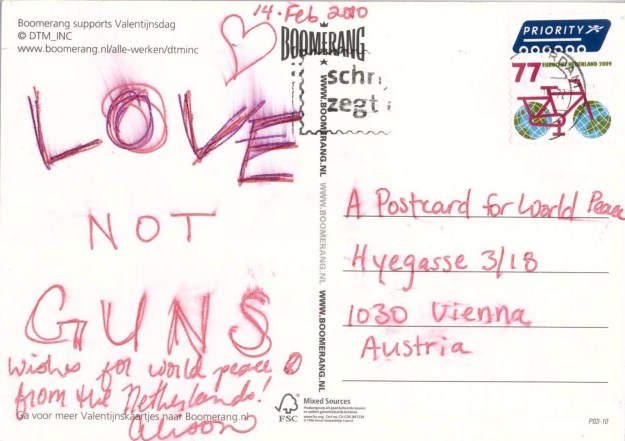 Boomerang supports Valentijnsdag
© DTM_INC
www.boomerang.nl/alle-werken/dtminc
14. Feb 2010
LOVE
NOT
GUNS
wishes for world peace
from the Netherlands!
Alison
Ga voor meer Valentijnskaartjes naar Boomerang.nl
BOOMERANG
WWW.BOOMERANG.NL WWW.BOOMERANG.NL WWW.BOOMERANG.NL
schr
zegt
PRIORITY
77 NEDERLAND 2009
A Postcard for World Peace
Hyegasse 3/18
1030 Vienna
Austria
FSC
Mixed Sources
P03-10